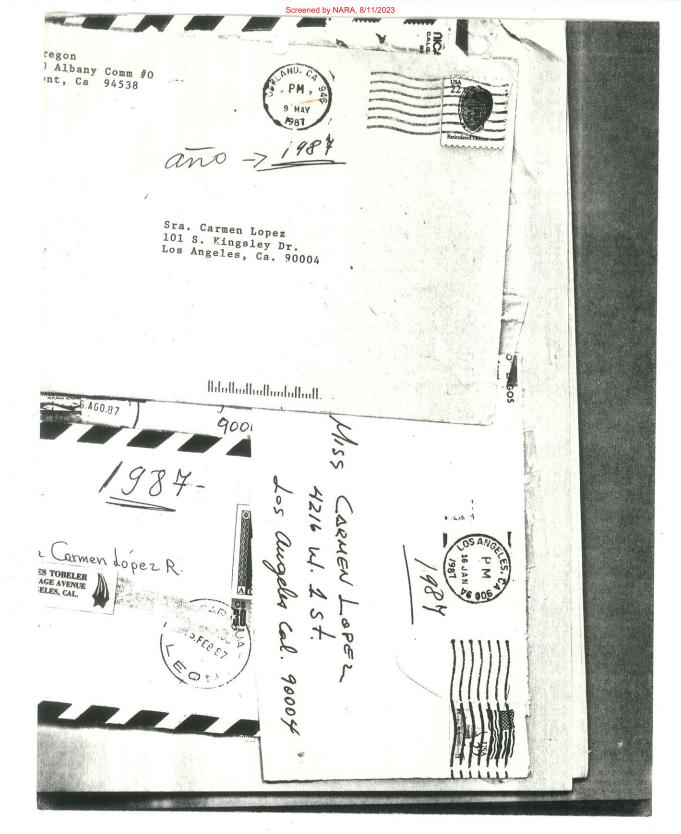 Screened by NARA, 8/11/2023
regon
Albany Comm #0
nt, Ca 94538
OAKLAND, CA 946
PM
9 MAY
1987
USA
22
año → 1987
Sra. Carmen Lopez
101 S. Kingsley Dr.
Los Angeles, Ca. 90004
AGO.87
900
1987-
Carmen López R.
ES TOBELER
AGE AVENUE
ELES, CAL.
FEB 87
LEON
Miss CARMEN LOPEZ
4216 W. 2 St.
Los Angeles Cal. 90004
LOS ANGELES, CA 900
PM
16 JAN
1987
1987
USA